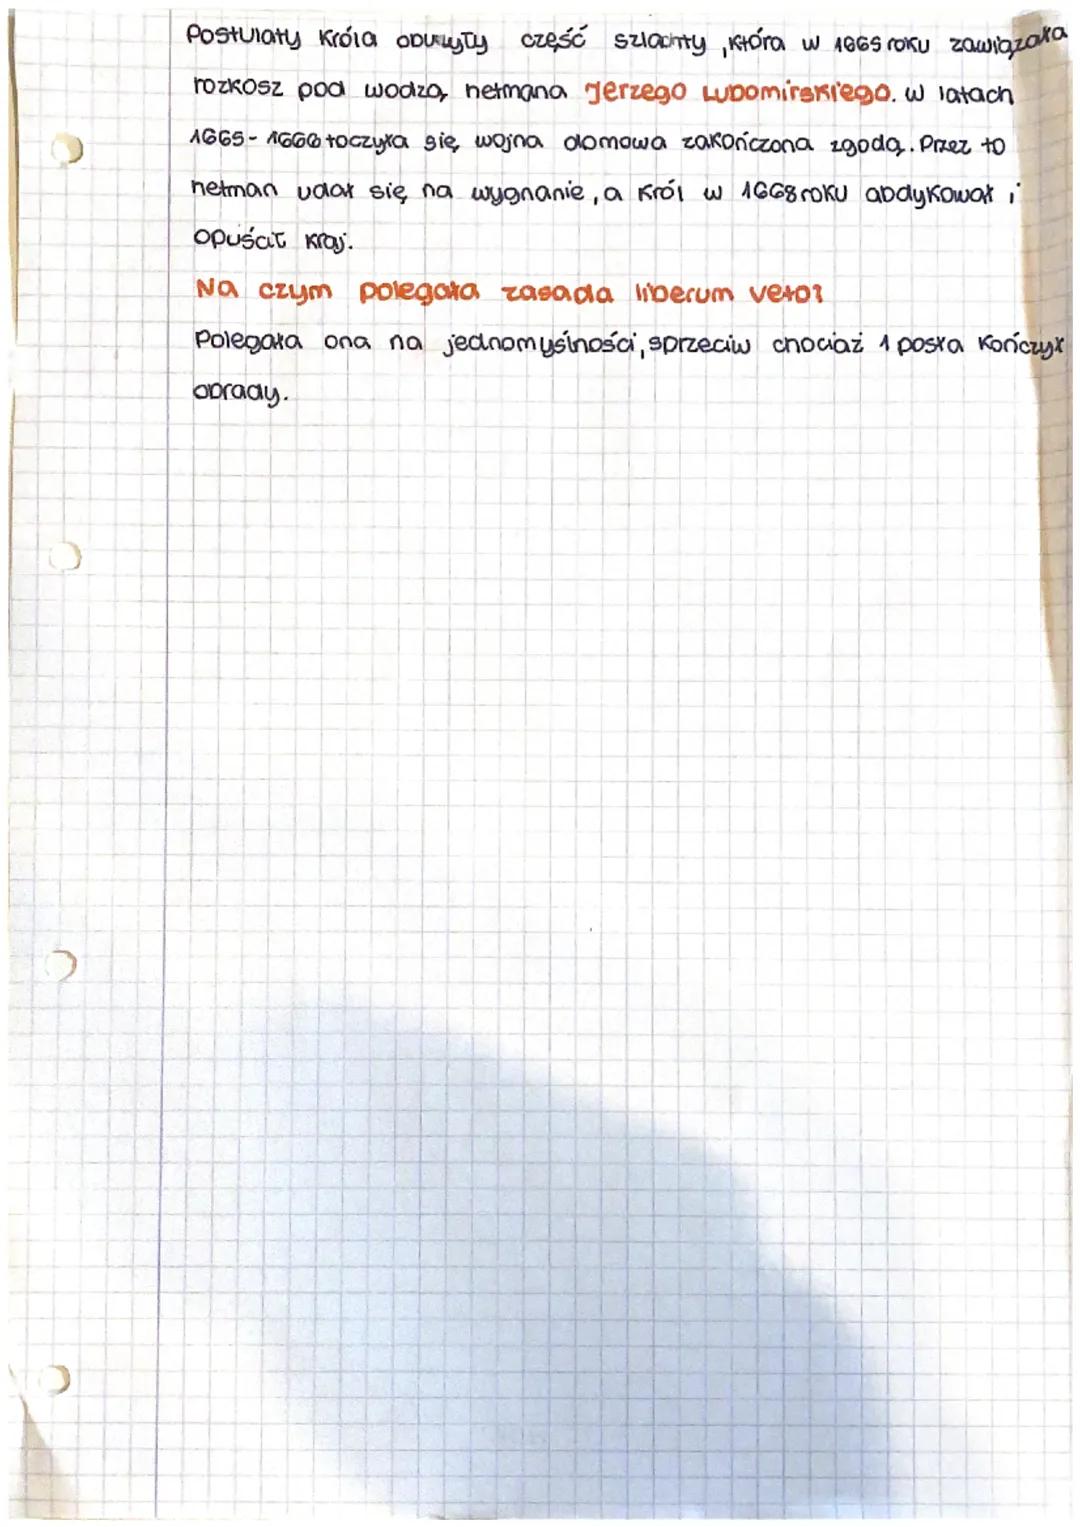 Postulaty Króla oburzyły część szlachty, która w 1665 roku zawiązała
rozkosz pod wodzą hetmana Jerzego Lubomirskiego. W latach
1665-1666 toczyła się wojna domowa zakończona zgodą. Przez to
hetman udał się na wygnanie, a król w 1668 roku abdykował i
opuścił kraj.
Na czym polegała zasada liberum veto?
Polegała ona na jednomyślności, sprzeciw chociaż 1 posła kończył
obrady.